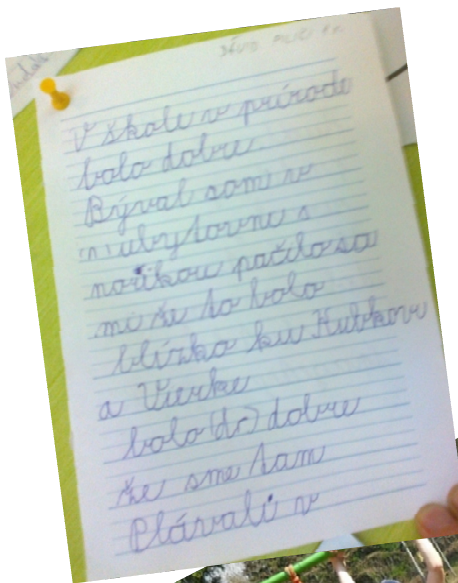 V škole v prírode
bolo dobre.
Býval som v
ubytovne s
noríkou pačilo sa
mi že to bolo
blízko ku Kubkovi
a Vierke
bolo (do) dobre
že sme tam
Plávali v